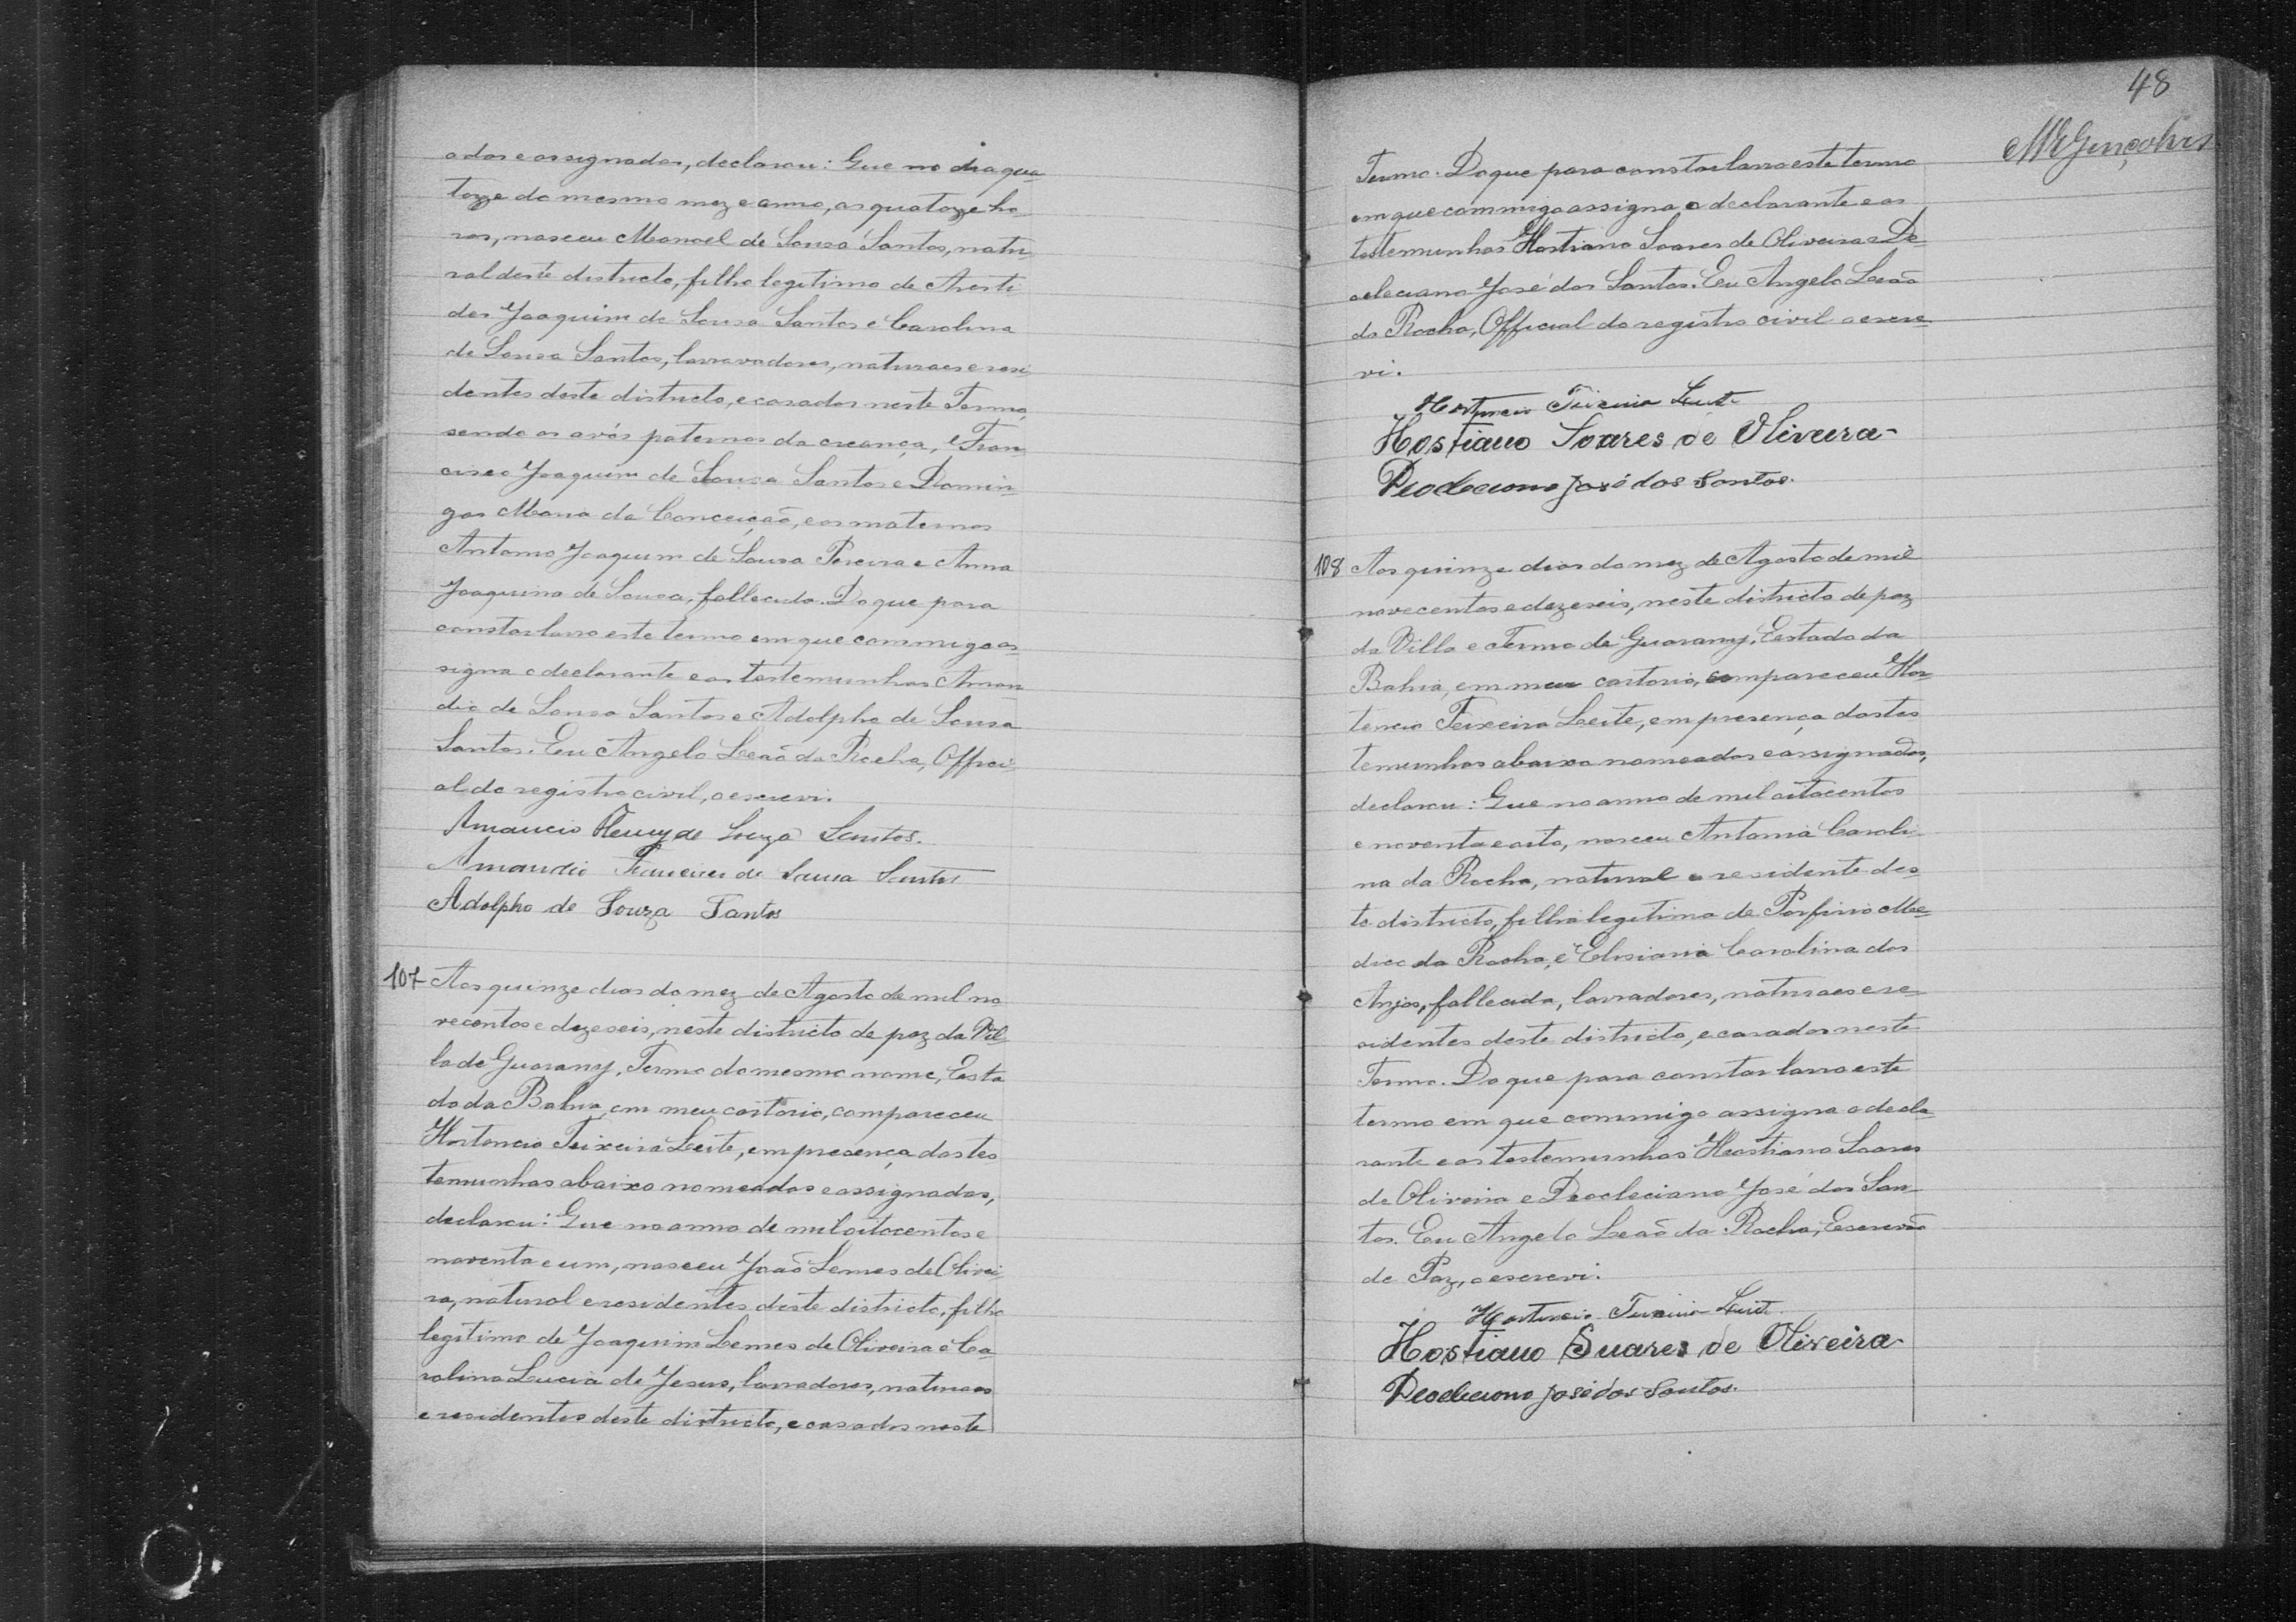 ados e assignados, declarou: Que no dia qua
torze do mesmo mez e anno, as quatorze ho
ras, nasceu Manoel de Sousa Santos, natu
ral deste districto, filho legitimo de Aristi
des Joaquim de Sousa Santos e Carolina
de Sousa Santos, lavravadores, naturaes e resi
dentes deste districto, e casados neste Termo,
sendo os avós paternos da creança, Fran
cisco Joaquim de Sousa Santos e Domin
gas Maria da Conceição, e os maternos
Antonio Joaquim de Sousa Pereira e Anna
Joaquina de Sousa, fallecida. Do que para
constar lavro este termo em que commigo as
signa o declarante e as testemunhas Aman
dio de Sousa Santos e Adolpho de Sousa
Santos. Eu Angelo Leão da Rocha, Offici
al do registro civil, o escrevi.
Amancio Fleury de Souza Santos.
Amandio de Sousa Santos
Adolpho de Souza Santos
107 Aos quinze dias do mez de Agosto de mil no
vecentos e dezeseis, neste districto de paz da Vil
la de Guarany, Termo do mesmo nome, Esta
do da Bahia, em meu cartorio, compareceu
Hortencio Teixeira Leite, em presença das tes
temunhas abaixo nomeadas e assignadas,
declarou: Que no anno de mil oitocentos e
noventa e um, nasceu João Lemos de Olivei
ra, natural e residentes deste districto, filho
legitimo de Joaquim Lemos de Oliveira e Ca
rolina Lucia de Jesus, lavradores, naturaes
e residentes deste districto, e casados neste
48
Termo. Do que para constar lavro este termo
em que commigo assigna o declarante e as
testemunhas Hostiano Soares de Oliveira e De
ocleciano José dos Santos. Eu Angelo Leão
da Rocha, Official do registro civil o escre
vi.
Hortencio Teixeira Leite
Hostiano Soares de Oliveira
Deocleciano José dos Santos.
108 Aos quinze dias do mez de Agosto de mil
novecentos e dezeseis, neste districto de paz
da Villa e Termo de Guarany, Estado da
Bahia, em meu cartorio, compareceu Hor
tencio Teixeira Leite, em presença das tes
temunhas abaixo nomeadas e assignadas,
declarou: Que no anno de mil oitocentos
e noventa e oito, nasceu Antonia Caroli
na da Rocha, natural e residente des
te districto, filha legitima de Porfirio Me
dico da Rocha, e Elisiaria Carolina dos
Anjos, fallecida, lavradores, naturaes e re
sidentes deste districto, e casados neste
Termo. Do que para constar lavro este
termo em que commigo assigna o decla
rante e as testemunhas Hostiano Soares
de Oliveira e Deocleciano José dos San
tos. Eu Angelo Leão da Rocha, Escrivão
de Paz, o escrevi.
Hortencio Teixeira Leite
Hostiano Suares de Oliveira
Deocleciano José dos Santos.